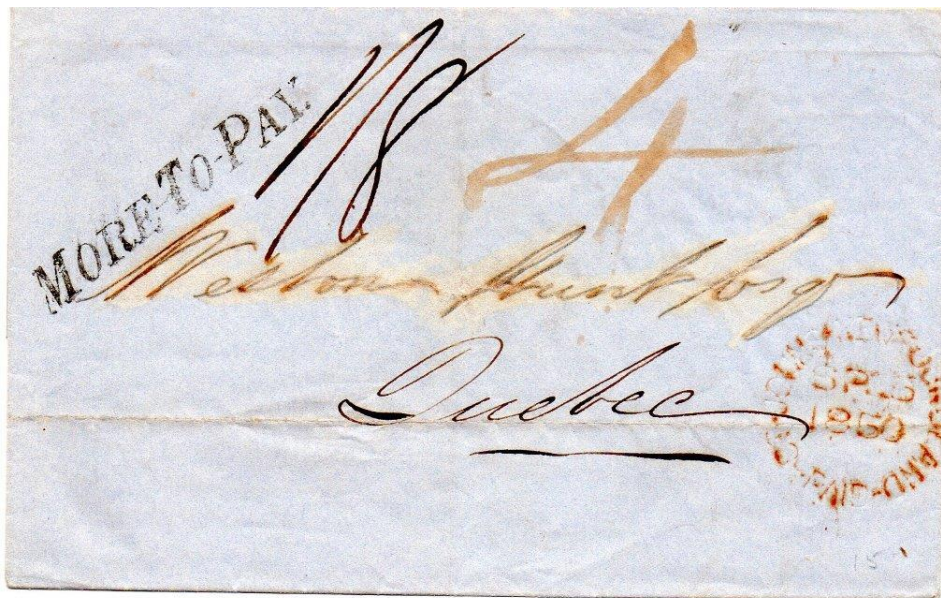 MORE-TO-PAY.
1/8
4
Weston Hunt Esqr
Quebec
1850
15